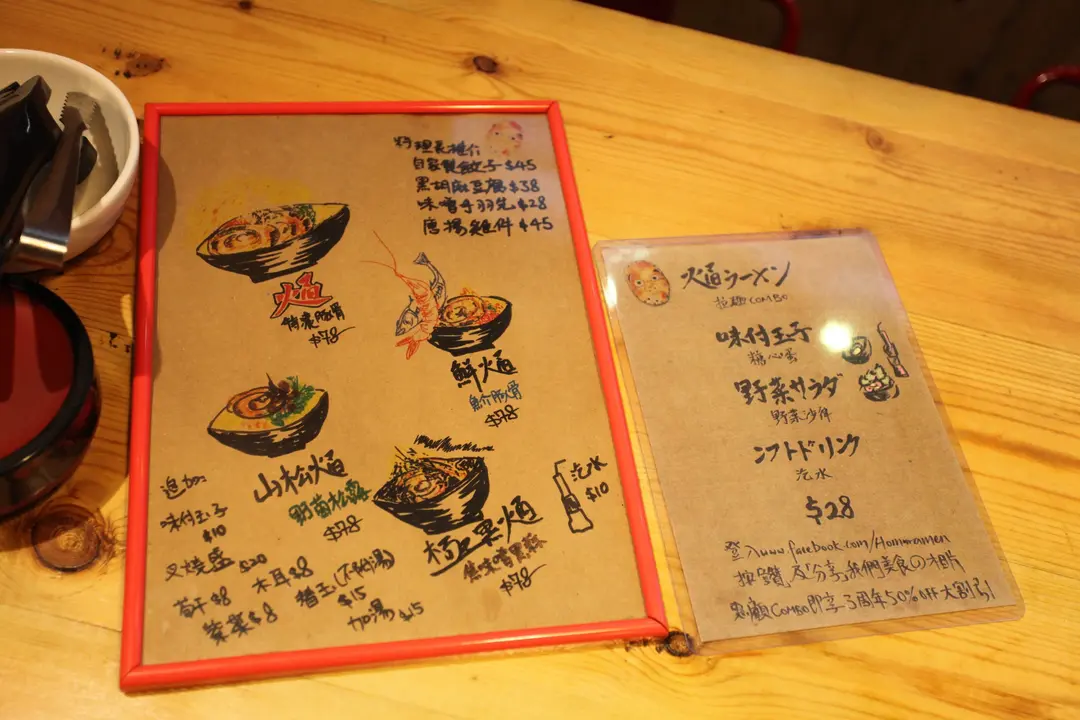 料理長推介
自家製餃子 $45
黑胡麻豆腐 $38
味噌手羽先 $28
唐揚雞件 $45
焔
特濃豚骨
$78
鮮焔
魚介豚骨
$78
山松焔
野菌松露
$78
極黒焔
焦味噌黑蒜
$78
汽水
$10
追加:
味付玉子
$10
叉燒盛 $20
木耳 $8
筍干 $8
替玉(不附湯)
$15
加湯 $15
菜菜 $8
焔ラーメン
COMBO
味付玉子
糖心蛋
野菜サラダ
野菜沙律
ソフトドリンク
汽水
$28
登入www.facebook.com/Homuramen
按讚,及分享我們美食の相片
COMBO即享3周年50%OFF大割引!